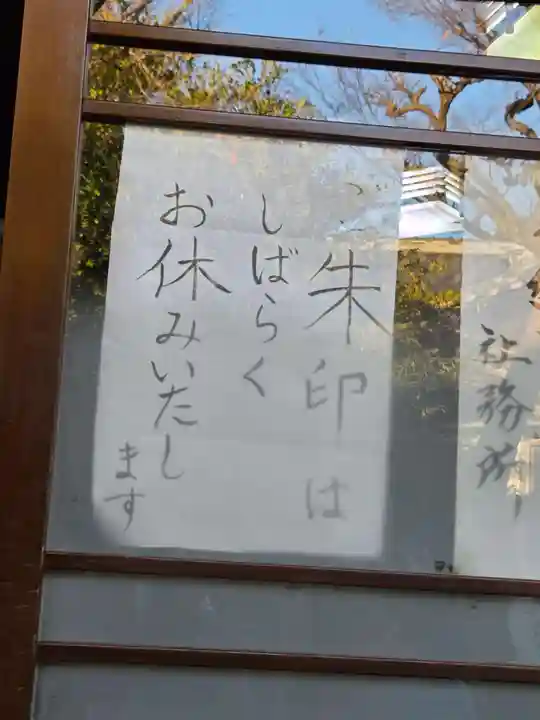 社務所
ご朱印は
しばらく
お休みいたし
ます